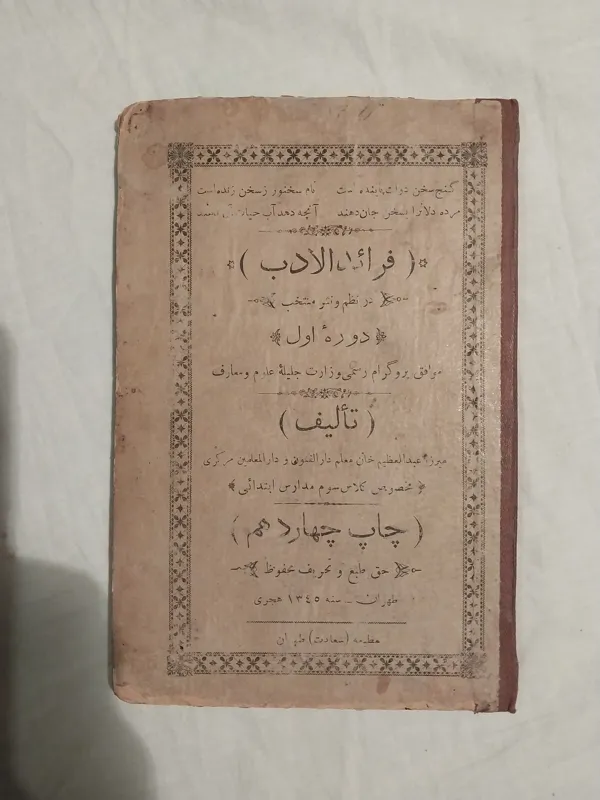 گنج سخن دولت پاینده است نام سخنور ز سخن زنده است
مرده دلانرا بسخن جان دهند آنچه دهد آب حیات آن دهند
( فرائد الادب )
در نظم و نثر منتخب
دورهٔ اول
موافق پروگرام رسمی وزارت جلیلهٔ علوم و معارف
( تألیف )
میرزا عبدالعظیم خان معلم دارالفنون و دارالمعلمین مرکزی
مخصوص کلاس سوم مدارس ابتدائی
( چاپ چهاردهم )
حق طبع و تحریف محفوظ
طهران ـ سنه ۱۳٤٥ هجری
مطبعه (سعادت) طهران